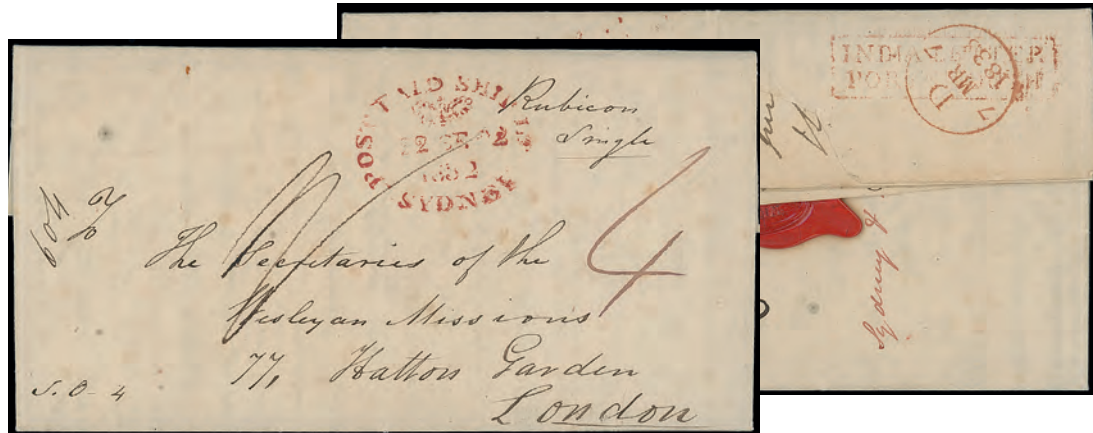 POST PAID SHIP
22 SE 2
1832
SYDNEY
Rubicon
Single
4
The Secretaries of the
Wesleyan Missions
77, Hatton Garden
London
S.O-4
INDIA LETTER
PORTSMOUTH
D
7 MR 7
1833
Sydney &